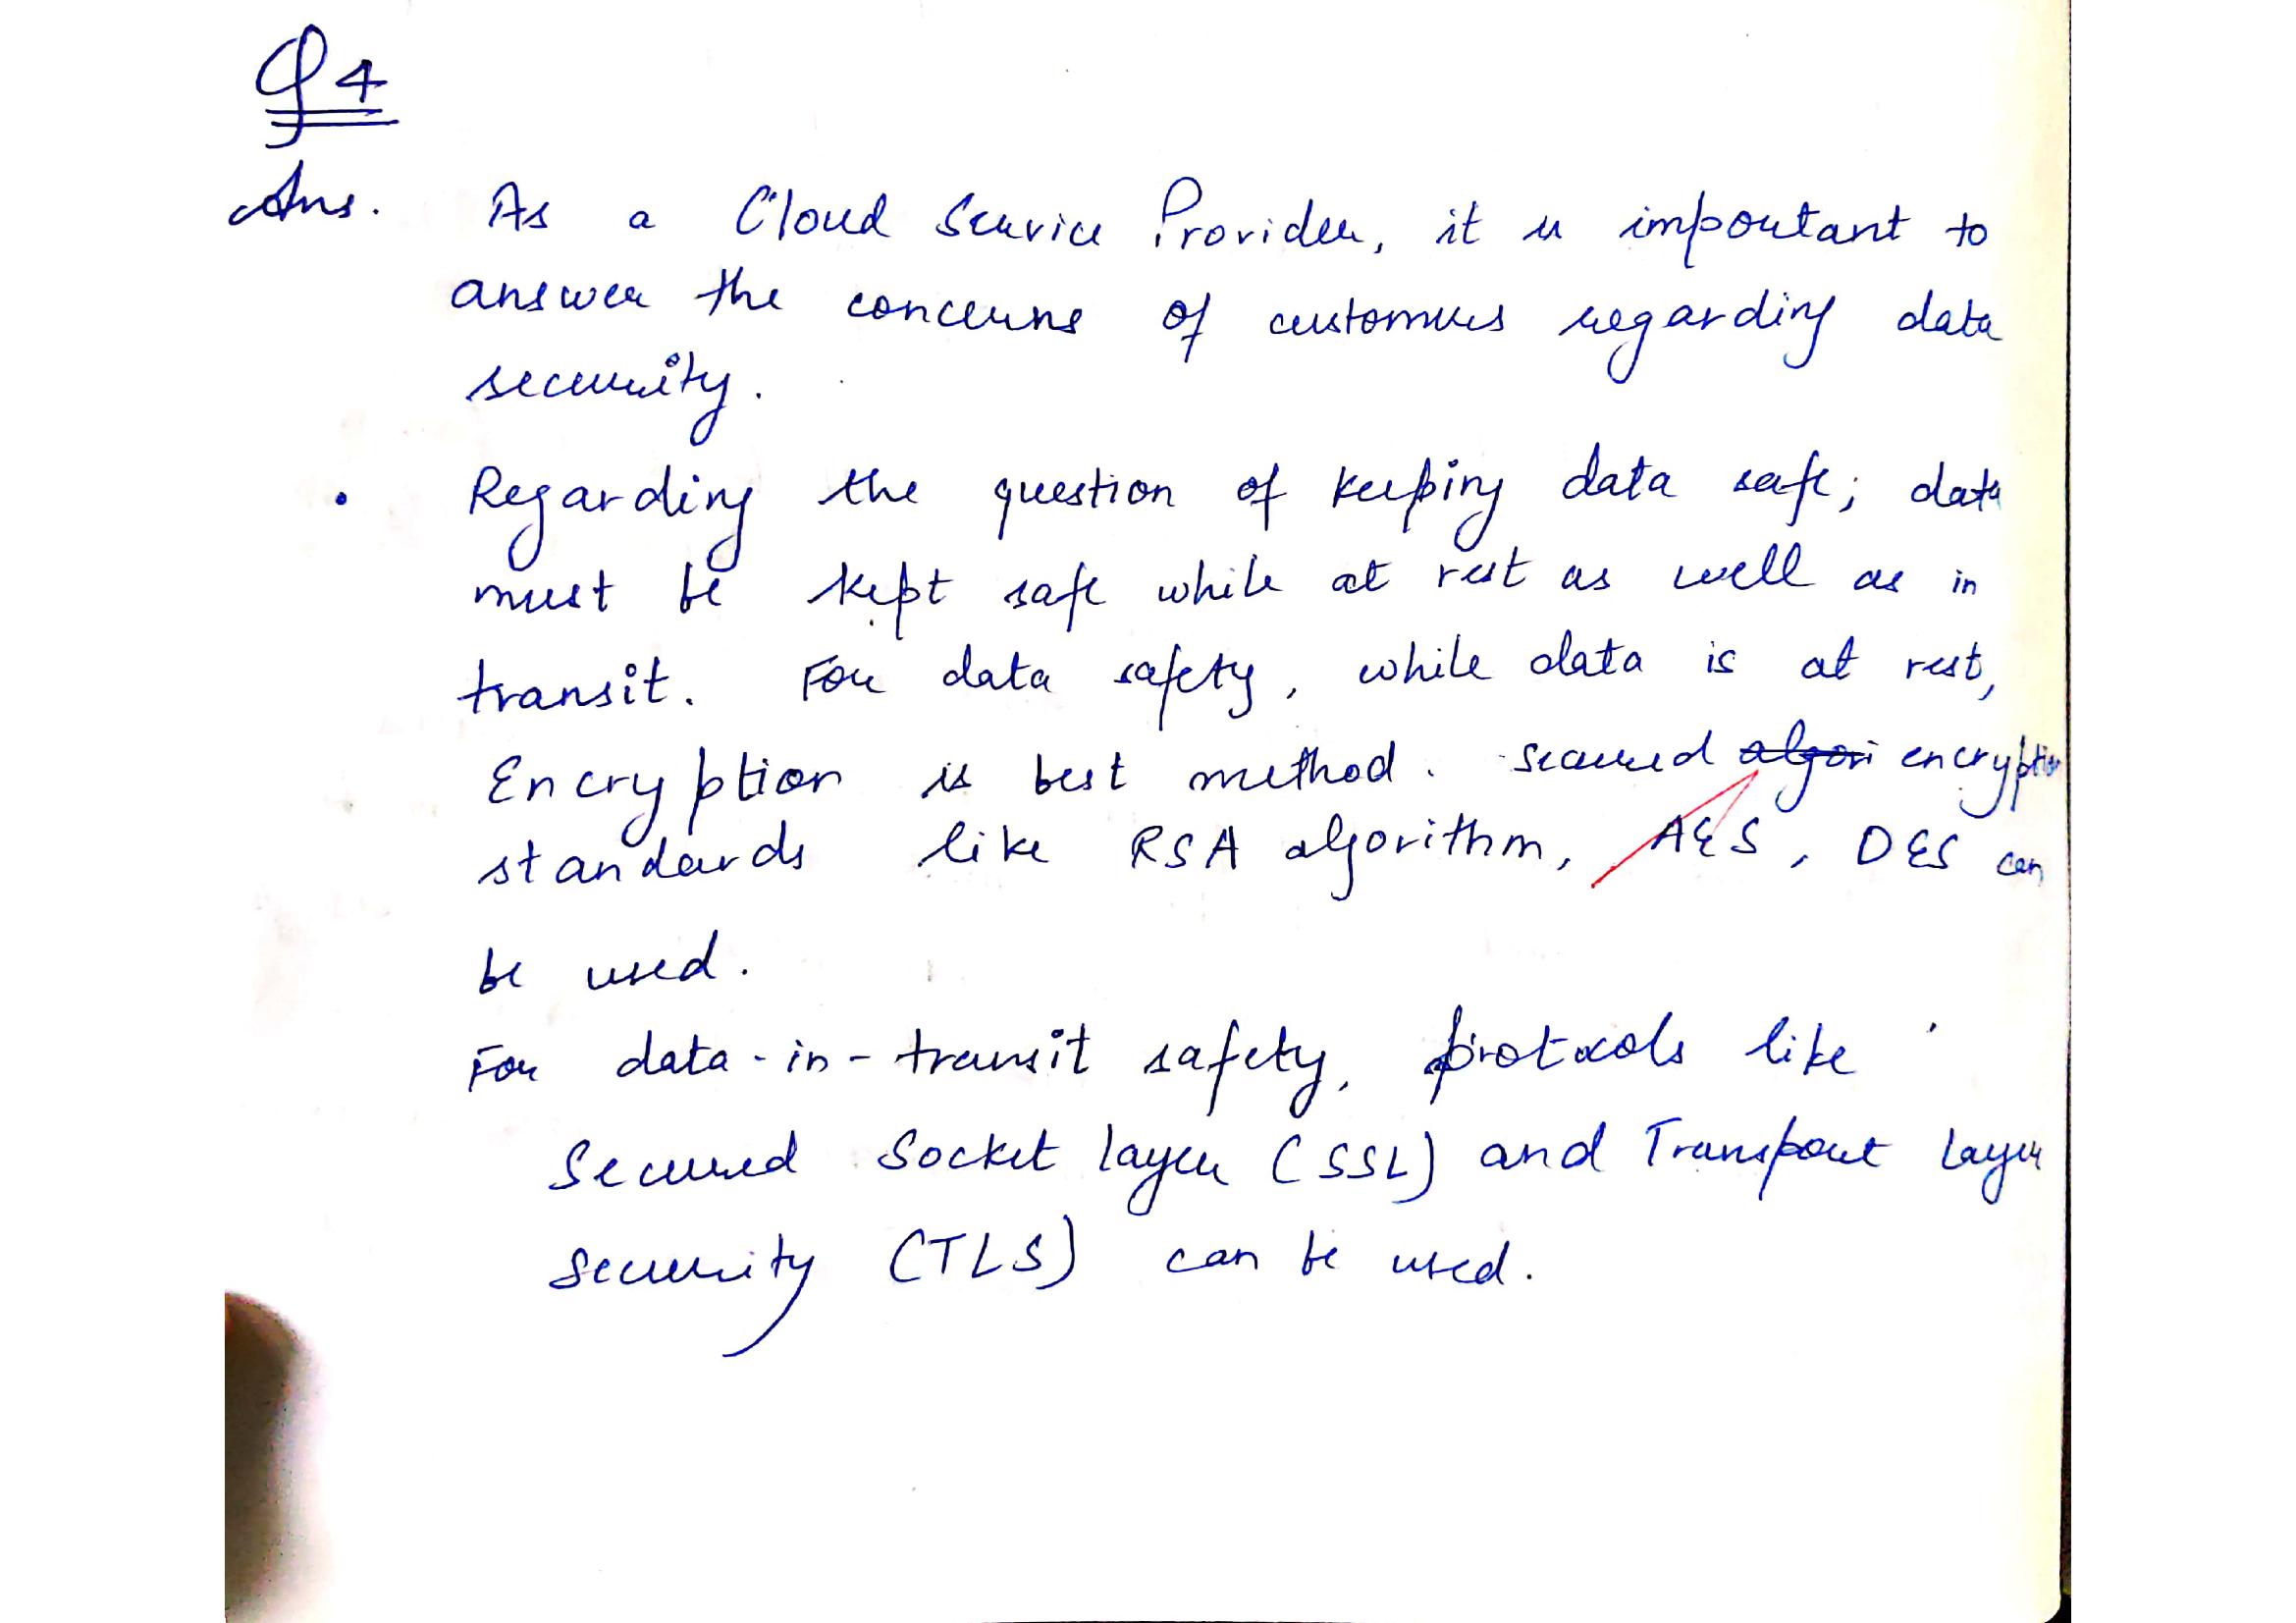 Q4
Ans. As a Cloud Service Provider, it is important to
answer the concerns of customers regarding data
security.
• Regarding the question of keeping data safe; data
must be kept safe while at rest as well as in
transit. For data safety, while data is at rest,
Encryption is best method. secured algori encryption
standards like RSA algorithm, AES, DES can
be used.
For data-in-transit safety, protocols like
Secured Socket layer (SSL) and Transport Layer
Security (TLS) can be used.